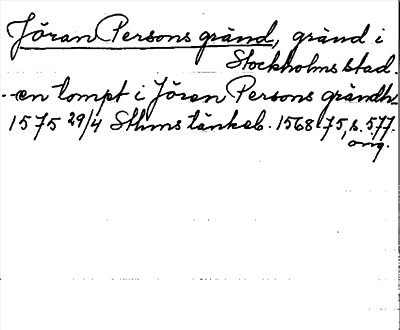 Jöran Persons gränd, gränd i
Stockholms stad.
- en tompt i Jöran Persons grändh
1575 29/4 Sthms tänkeb. 1568-75, s. 577.
orig.